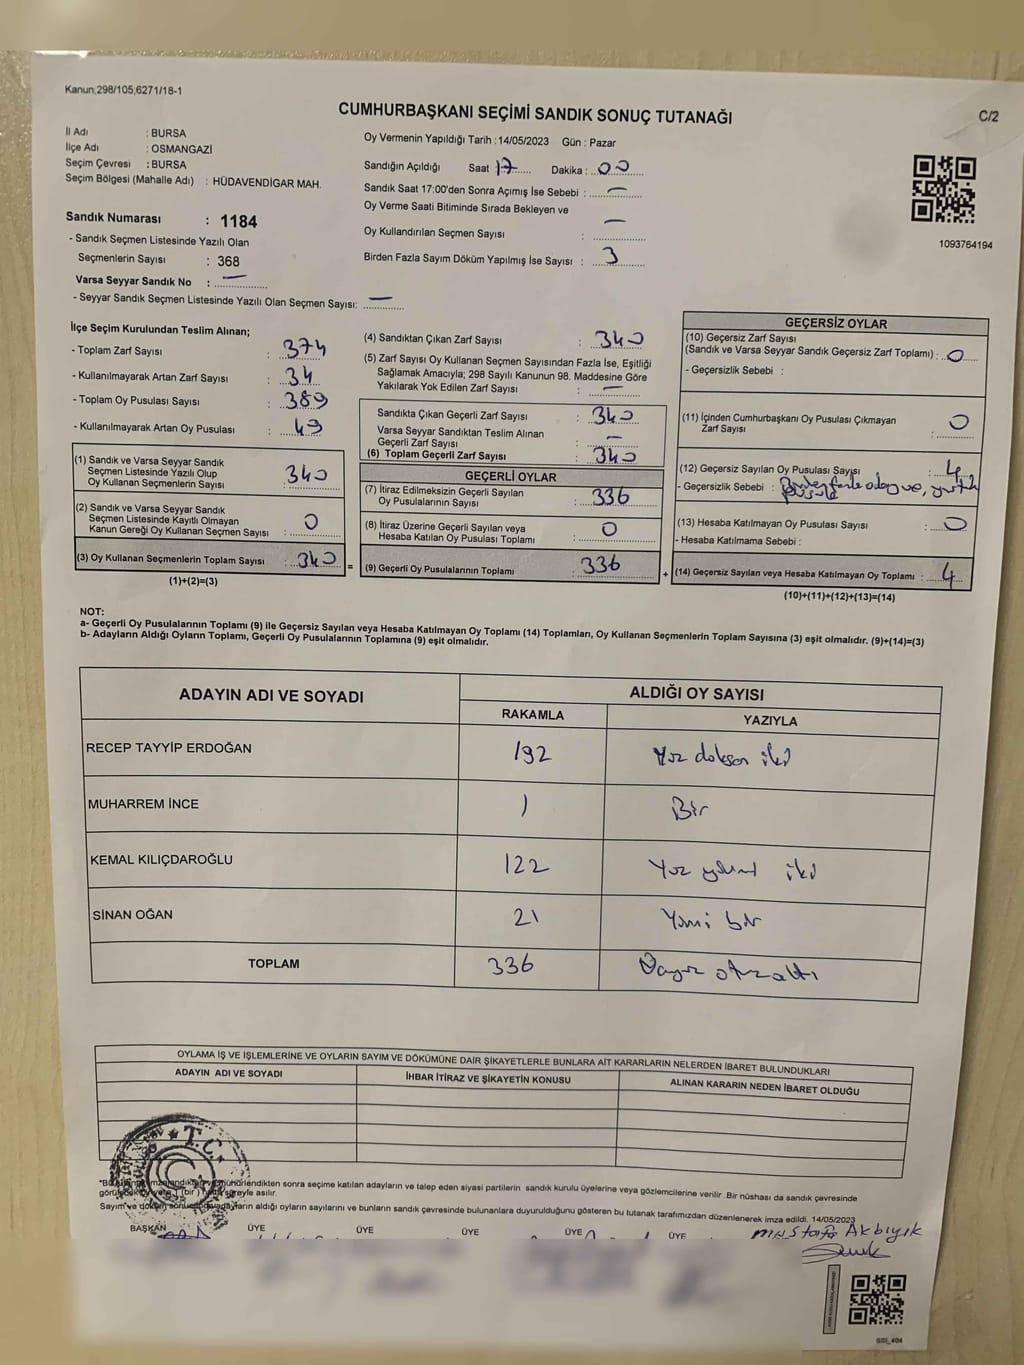 Kanun;298/105,6271/18-1
CUMHURBAŞKANI SEÇİMİ SANDIK SONUÇ TUTANAĞI
C/2
İl Adı : BURSA
İlçe Adı : OSMANGAZİ
Seçim Çevresi : BURSA
Seçim Bölgesi (Mahalle Adı) : HÜDAVENDİGAR MAH.
Sandık Numarası : 1184
- Sandık Seçmen Listesinde Yazılı Olan
Seçmenlerin Sayısı : 368
Varsa Seyyar Sandık No : —
- Seyyar Sandık Seçmen Listesinde Yazılı Olan Seçmen Sayısı: —
Oy Vermenin Yapıldığı Tarih : 14/05/2023 Gün : Pazar
Sandığın Açıldığı Saat 17 Dakika : 00
Sandık Saat 17:00'den Sonra Açılmış İse Sebebi : —
Oy Verme Saati Bitiminde Sırada Bekleyen ve
Oy Kullandırılan Seçmen Sayısı : —
Birden Fazla Sayım Döküm Yapılmış İse Sayısı : 3
1093764194
İlçe Seçim Kurulundan Teslim Alınan;
- Toplam Zarf Sayısı : 374
- Kullanılmayarak Artan Zarf Sayısı : 34
- Toplam Oy Pusulası Sayısı : 389
- Kullanılmayarak Artan Oy Pusulası : 49
(1) Sandık ve Varsa Seyyar Sandık
Seçmen Listesinde Yazılı Olup
Oy Kullanan Seçmenlerin Sayısı : 340
(2) Sandık ve Varsa Seyyar Sandık
Seçmen Listesinde Kayıtlı Olmayan
Kanun Gereği Oy Kullanan Seçmen Sayısı : 0
(3) Oy Kullanan Seçmenlerin Toplam Sayısı : 340
(1)+(2)=(3)
=
(4) Sandıktan Çıkan Zarf Sayısı : 340
(5) Zarf Sayısı Oy Kullanan Seçmen Sayısından Fazla İse, Eşitliği
Sağlamak Amacıyla; 298 Sayılı Kanunun 98. Maddesine Göre
Yakılarak Yok Edilen Zarf Sayısı : —
Sandıkta Çıkan Geçerli Zarf Sayısı : 340
Varsa Seyyar Sandıktan Teslim Alınan
Geçerli Zarf Sayısı : —
(6) Toplam Geçerli Zarf Sayısı : 340
GEÇERLİ OYLAR
(7) İtiraz Edilmeksizin Geçerli Sayılan
Oy Pusulalarının Sayısı : 336
(8) İtiraz Üzerine Geçerli Sayılan veya
Hesaba Katılan Oy Pusulası Toplamı : 0
(9) Geçerli Oy Pusulalarının Toplamı : 336
+
GEÇERSİZ OYLAR
(10) Geçersiz Zarf Sayısı
(Sandık ve Varsa Seyyar Sandık Geçersiz Zarf Toplamı) : 0
- Geçersizlik Sebebi :
(11) İçinden Cumhurbaşkanı Oy Pusulası Çıkmayan
Zarf Sayısı : 0
(12) Geçersiz Sayılan Oy Pusulası Sayısı : 4
- Geçersizlik Sebebi : Birden fazla oy, yırtık
pusula
(13) Hesaba Katılmayan Oy Pusulası Sayısı : 0
- Hesaba Katılmama Sebebi :
(14) Geçersiz Sayılan veya Hesaba Katılmayan Oy Toplamı : 4
(10)+(11)+(12)+(13)=(14)
NOT:
a- Geçerli Oy Pusulalarının Toplamı (9) ile Geçersiz Sayılan veya Hesaba Katılmayan Oy Toplamı (14) Toplamları, Oy Kullanan Seçmenlerin Toplam Sayısına (3) eşit olmalıdır. (9)+(14)=(3)
b- Adayların Aldığı Oyların Toplamı, Geçerli Oy Pusulalarının Toplamına (9) eşit olmalıdır.
ADAYIN ADI VE SOYADI ALDIĞI OY SAYISI
RAKAMLA YAZIYLA
RECEP TAYYİP ERDOĞAN 192 Yüz doksan iki
MUHARREM İNCE 1 Bir
KEMAL KILIÇDAROĞLU 122 Yüz yirmi iki
SİNAN OĞAN 21 Yirmi bir
TOPLAM 336 Üçyüz otuzaltı
OYLAMA İŞ VE İŞLEMLERİNE VE OYLARIN SAYIM VE DÖKÜMÜNE DAİR ŞİKAYETLERLE BUNLARA AİT KARARLARIN NELERDEN İBARET BULUNDUKLARI
ADAYIN ADI VE SOYADI İHBAR İTİRAZ VE ŞİKAYETİN KONUSU ALINAN KARARIN NEDEN İBARET OLDUĞU
T.C.
sonra seçime katılan adayların ve talep eden siyasi partilerin sandık kurulu üyelerine veya gözlemcilerine verilir. Bir nüshası da sandık çevresinde
(bir) süreyle asılır.
Sayım ve aldığı oyların sayılarını ve bunların sandık çevresinde bulunanlara duyurulduğunu gösteren bu tutanak tarafımızdan düzenlenerek imza edildi. 14/05/2023
BAŞKAN ÜYE ÜYE ÜYE ÜYE ÜYE Mustafa Akbıyık